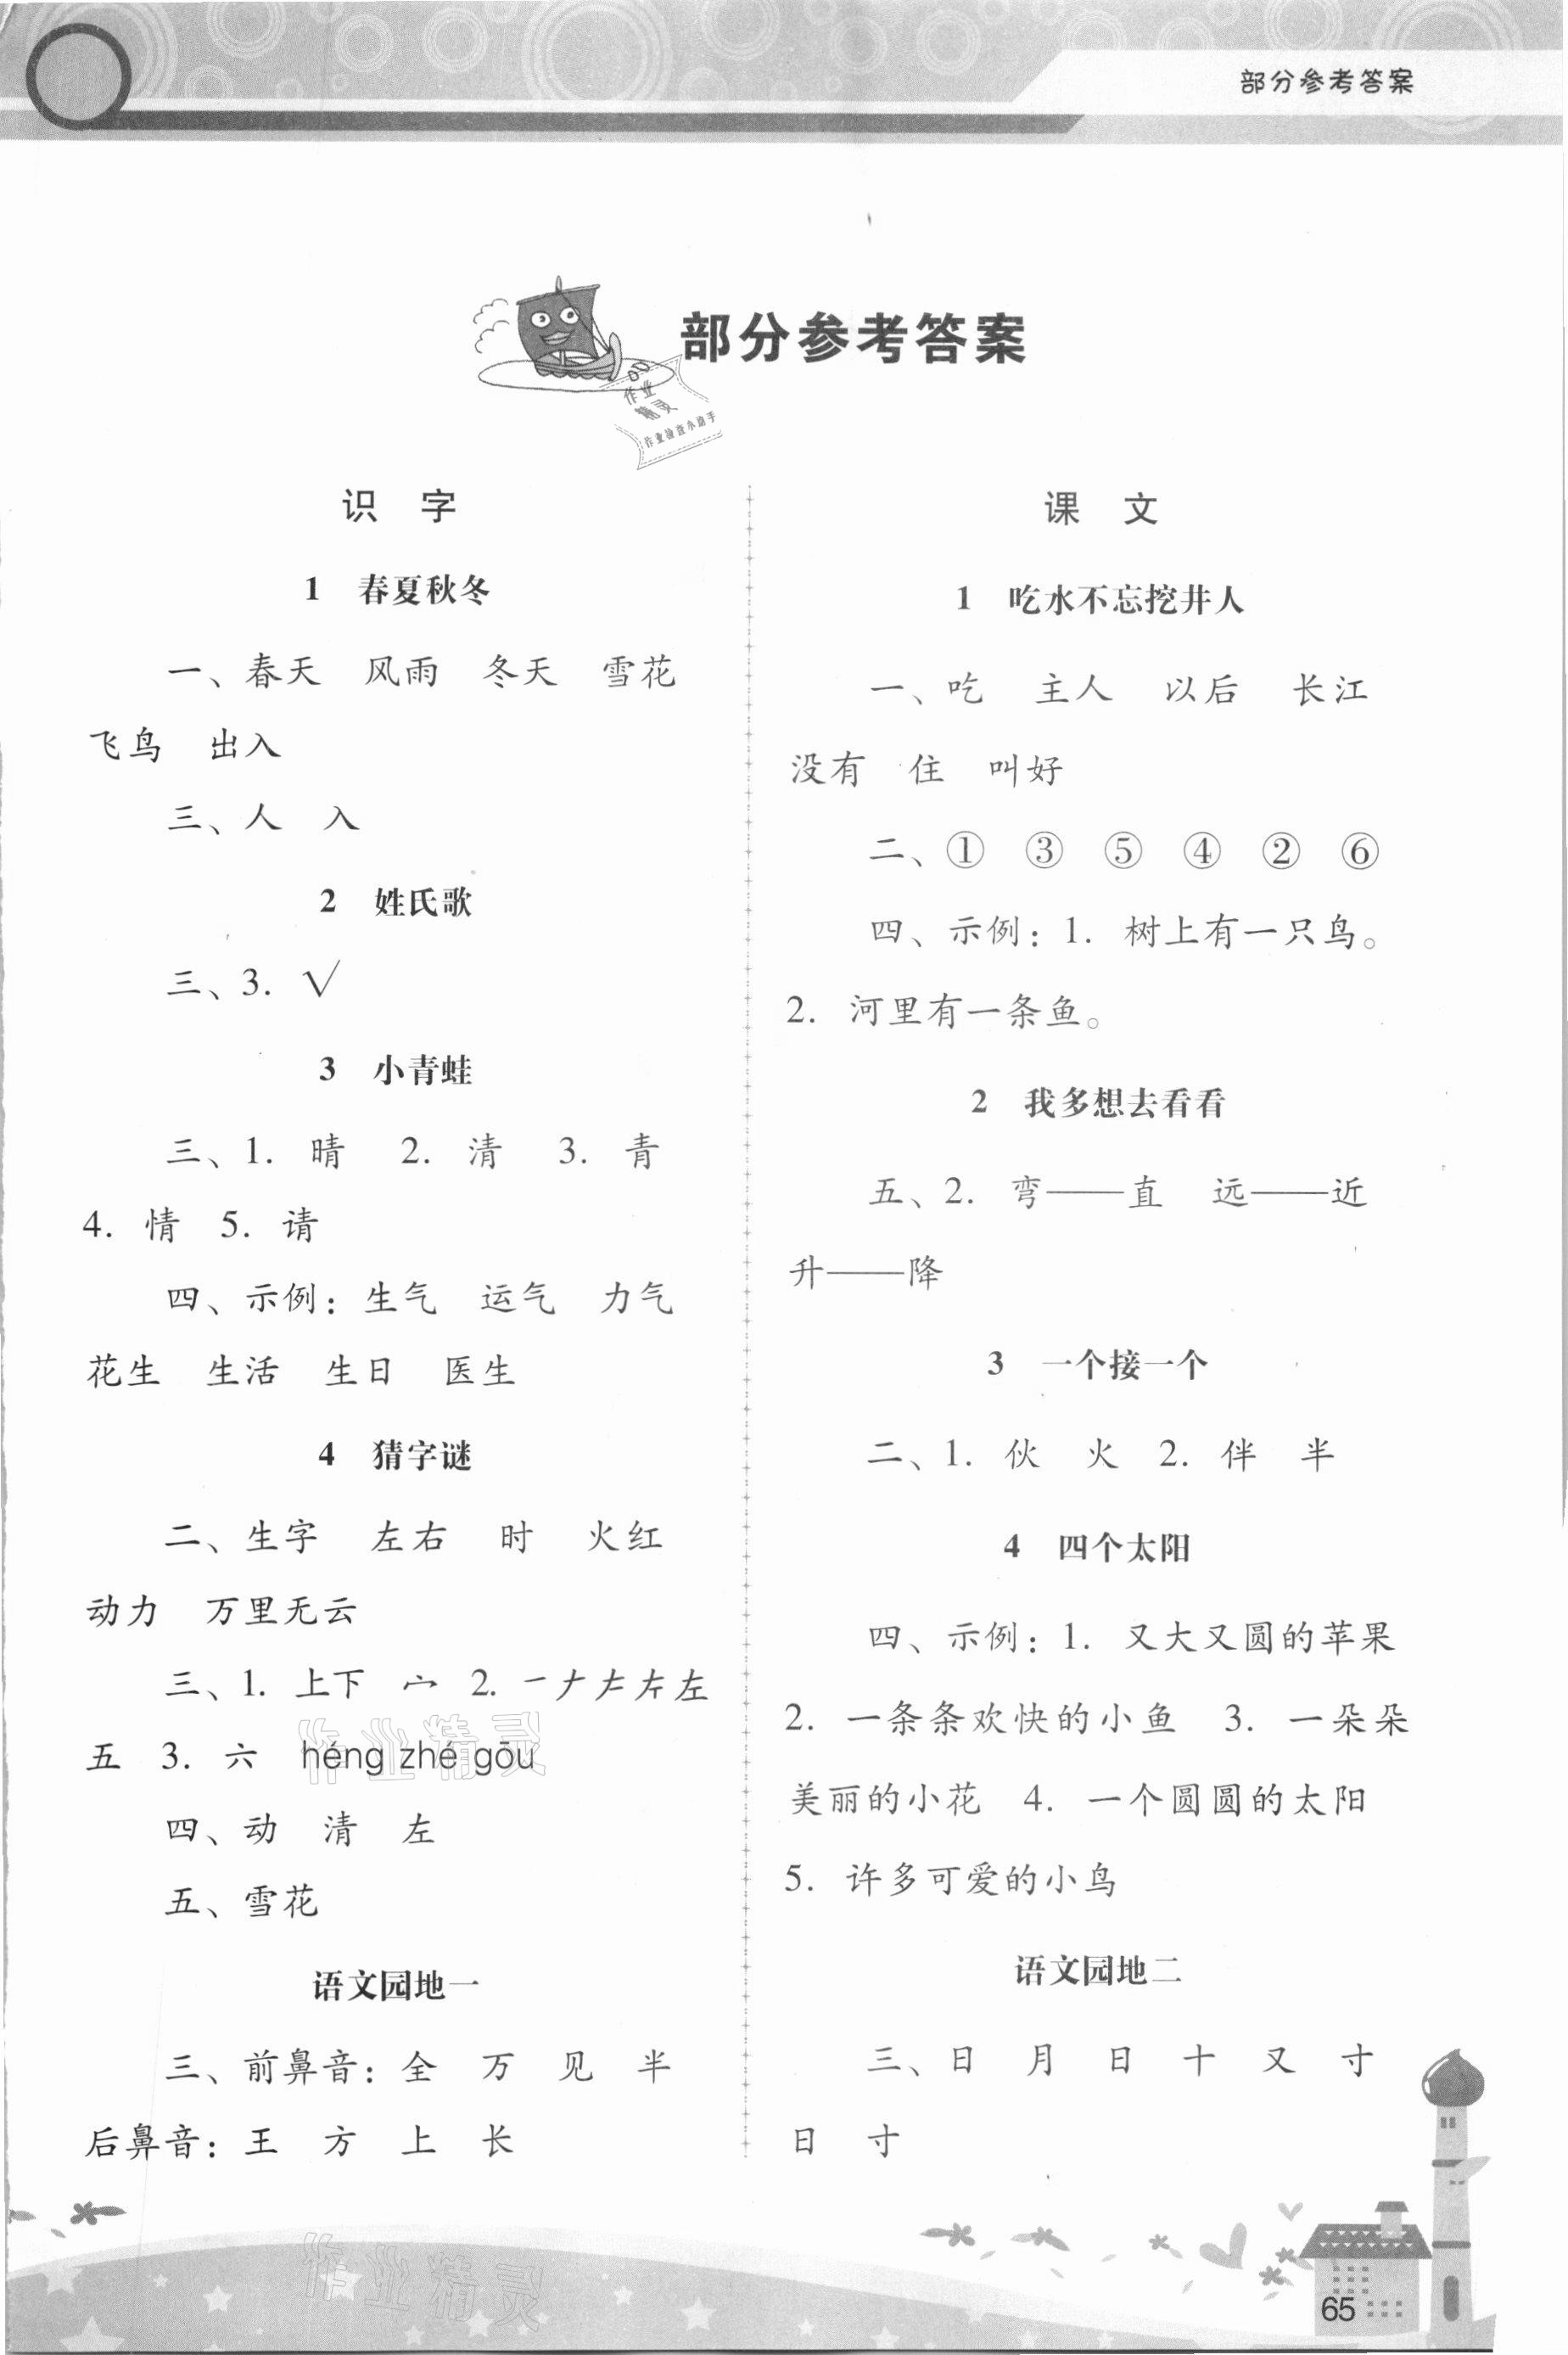 部分参考答案
部分参考答案
作业
精灵
作业检查小助手
识 字
1 春夏秋冬
一、春天 风雨 冬天 雪花
飞鸟 出入
三、人 入
2 姓氏歌
三、3. √
3 小青蛙
三、1. 晴 2. 清 3. 青
4. 情 5. 请
四、示例：生气 运气 力气
花生 生活 生日 医生
4 猜字谜
二、生字 左右 时 火红
动力 万里无云
三、1. 上下 宀 2. 一ナ𠂇左左
五 3. 六 héng zhé gōu
四、动 清 左
五、雪花
语文园地一
三、前鼻音：全 万 见 半
后鼻音：王 方 上 长
课 文
1 吃水不忘挖井人
一、吃 主人 以后 长江
没有 住 叫好
二、① ③ ⑤ ④ ② ⑥
四、示例：1. 树上有一只鸟。
2. 河里有一条鱼。
2 我多想去看看
五、2. 弯——直 远——近
升——降
3 一个接一个
二、1. 伙 火 2. 伴 半
4 四个太阳
四、示例：1. 又大又圆的苹果
2. 一条条欢快的小鱼 3. 一朵朵
美丽的小花 4. 一个圆圆的太阳
5. 许多可爱的小鸟
语文园地二
三、日 月 日 十 又 寸
日 寸
作业精灵
作业精灵
65